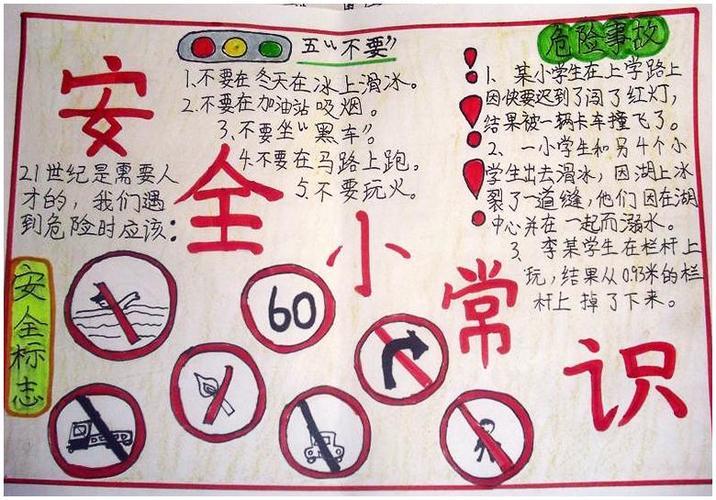 安全小常识
五"不要"
1、不要在冬天在冰上滑冰。
2、不要在加油站吸烟。
3、不要坐"黑车"。
4、不要在马路上跑。
5、不要玩火。
21世纪是需要人
才的，我们遇
到危险时应该：
危险事故
1、某小学生在上学路上
因快要迟到了闯了红灯，
结果被一辆卡车撞飞了。
2、一小学生和另4个小
学生出去滑冰，因湖上冰
裂了一道缝，他们因在湖
中心并在一起而溺水。
3、李某学生在栏杆上
玩，结果从0.93米的栏
杆上掉了下来。
安全标志
60